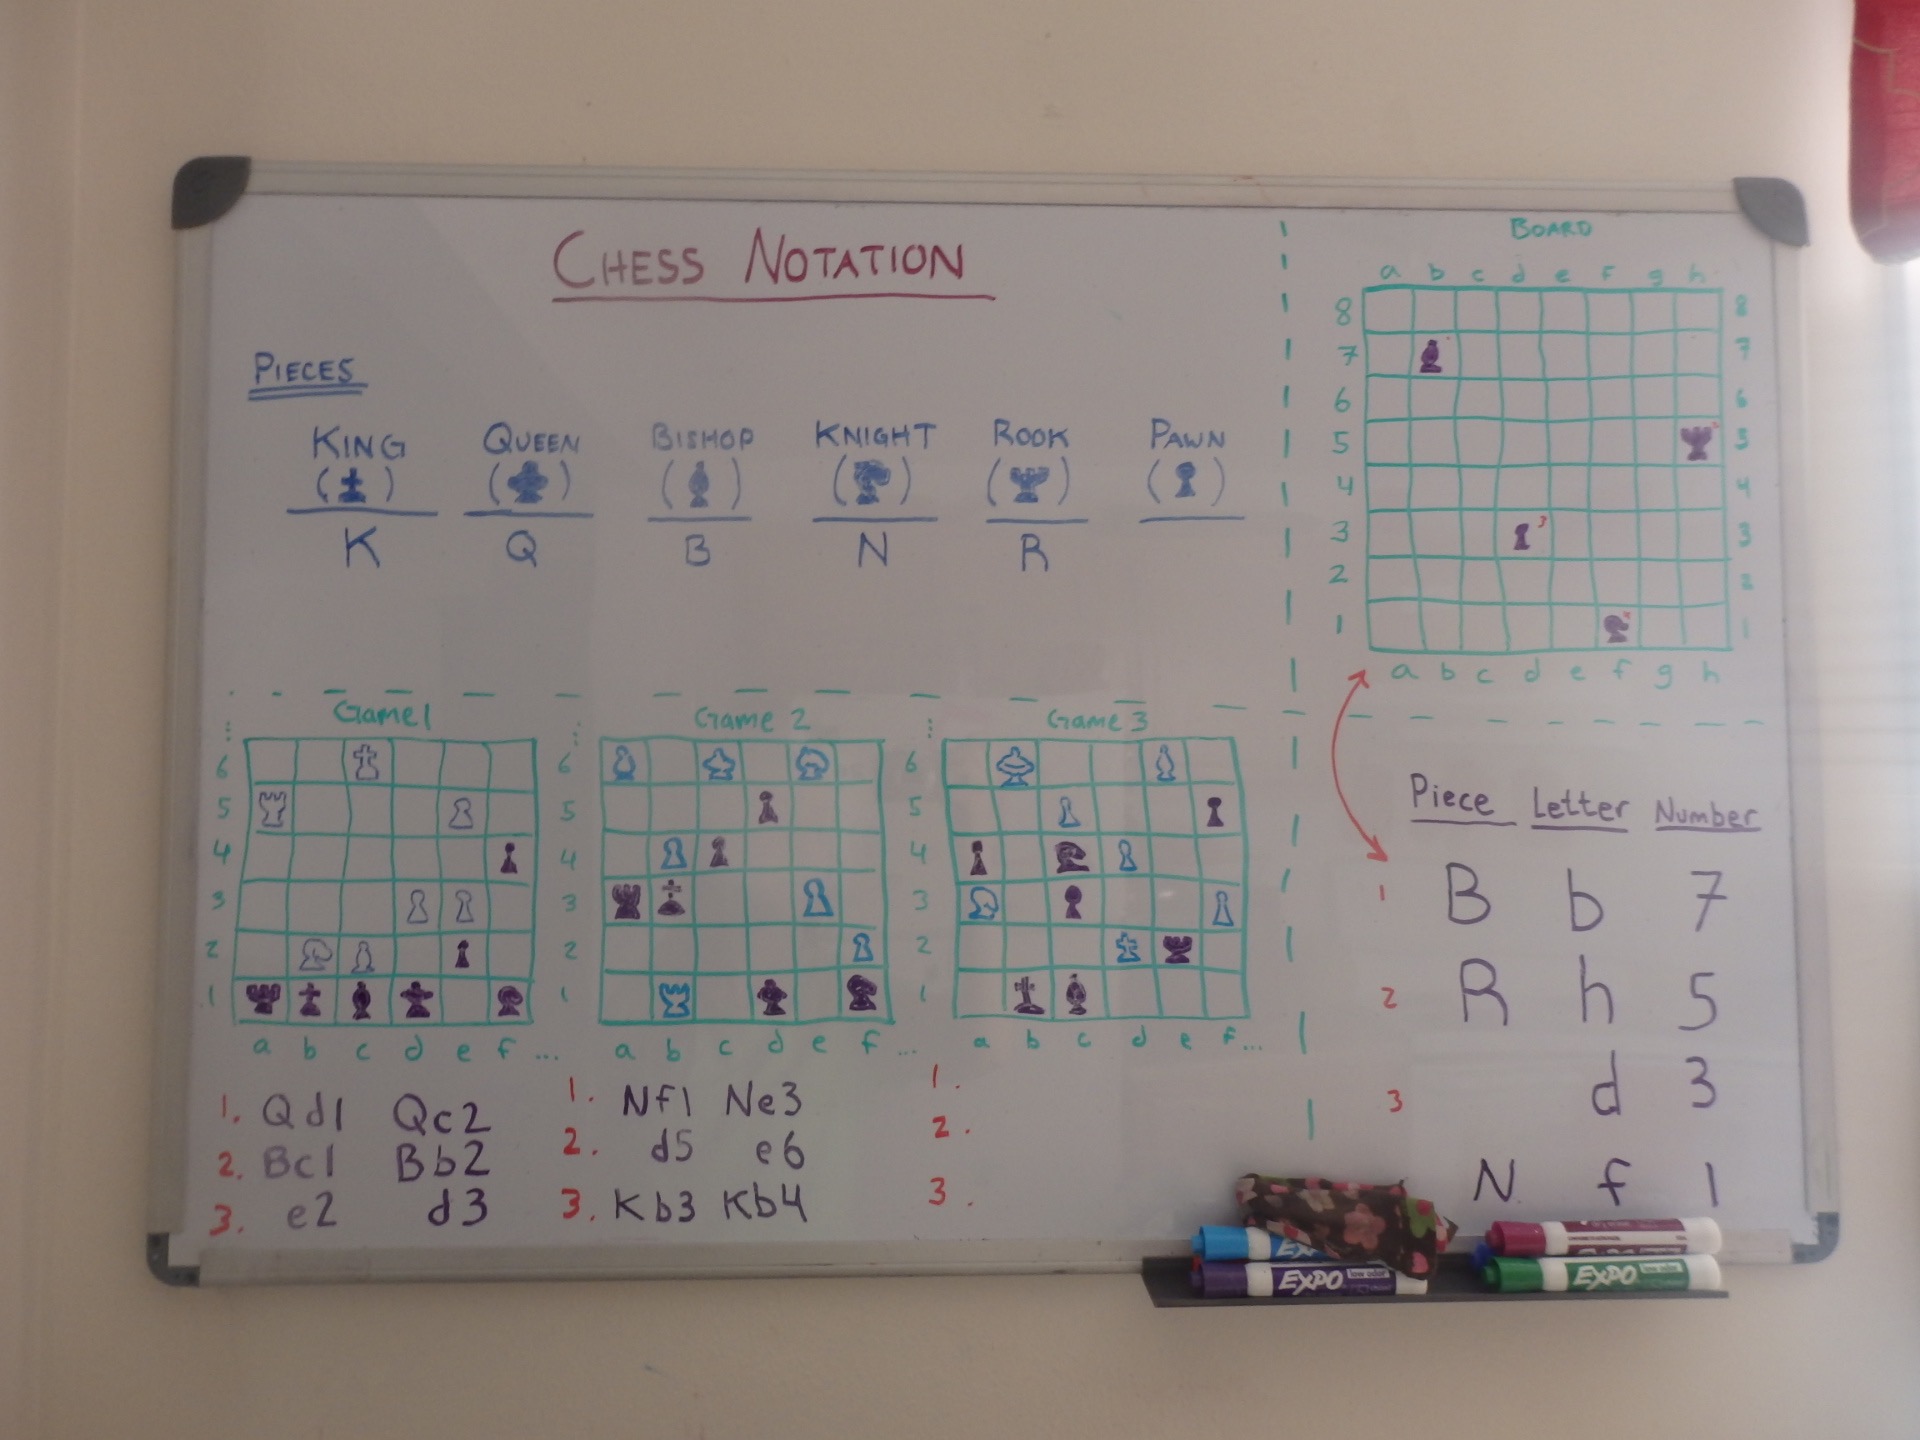 CHESS NOTATION
PIECES
KING QUEEN BISHOP KNIGHT ROOK PAWN
( ) ( ) ( ) ( ) ( ) ( )
K Q B N R
BOARD
a b c d e f g h
8 8
7 7
6 6
5 5
4 4
3 3
2 2
1 1
a b c d e f g h
Game 1
6
5
4
3
2
1
a b c d e f ...
1. Qd1 Qc2
2. Bc1 Bb2
3. e2 d3
Game 2
6
5
4
3
2
1
a b c d e f ...
1. Nf1 Ne3
2. d5 e6
3. Kb3 Kb4
Game 3
6
5
4
3
2
1
a b c d e f...
1.
2.
3.
Piece Letter Number
1 B b 7
2 R h 5
3 d 3
N f 1
EXPO low odor
EXPO low odor